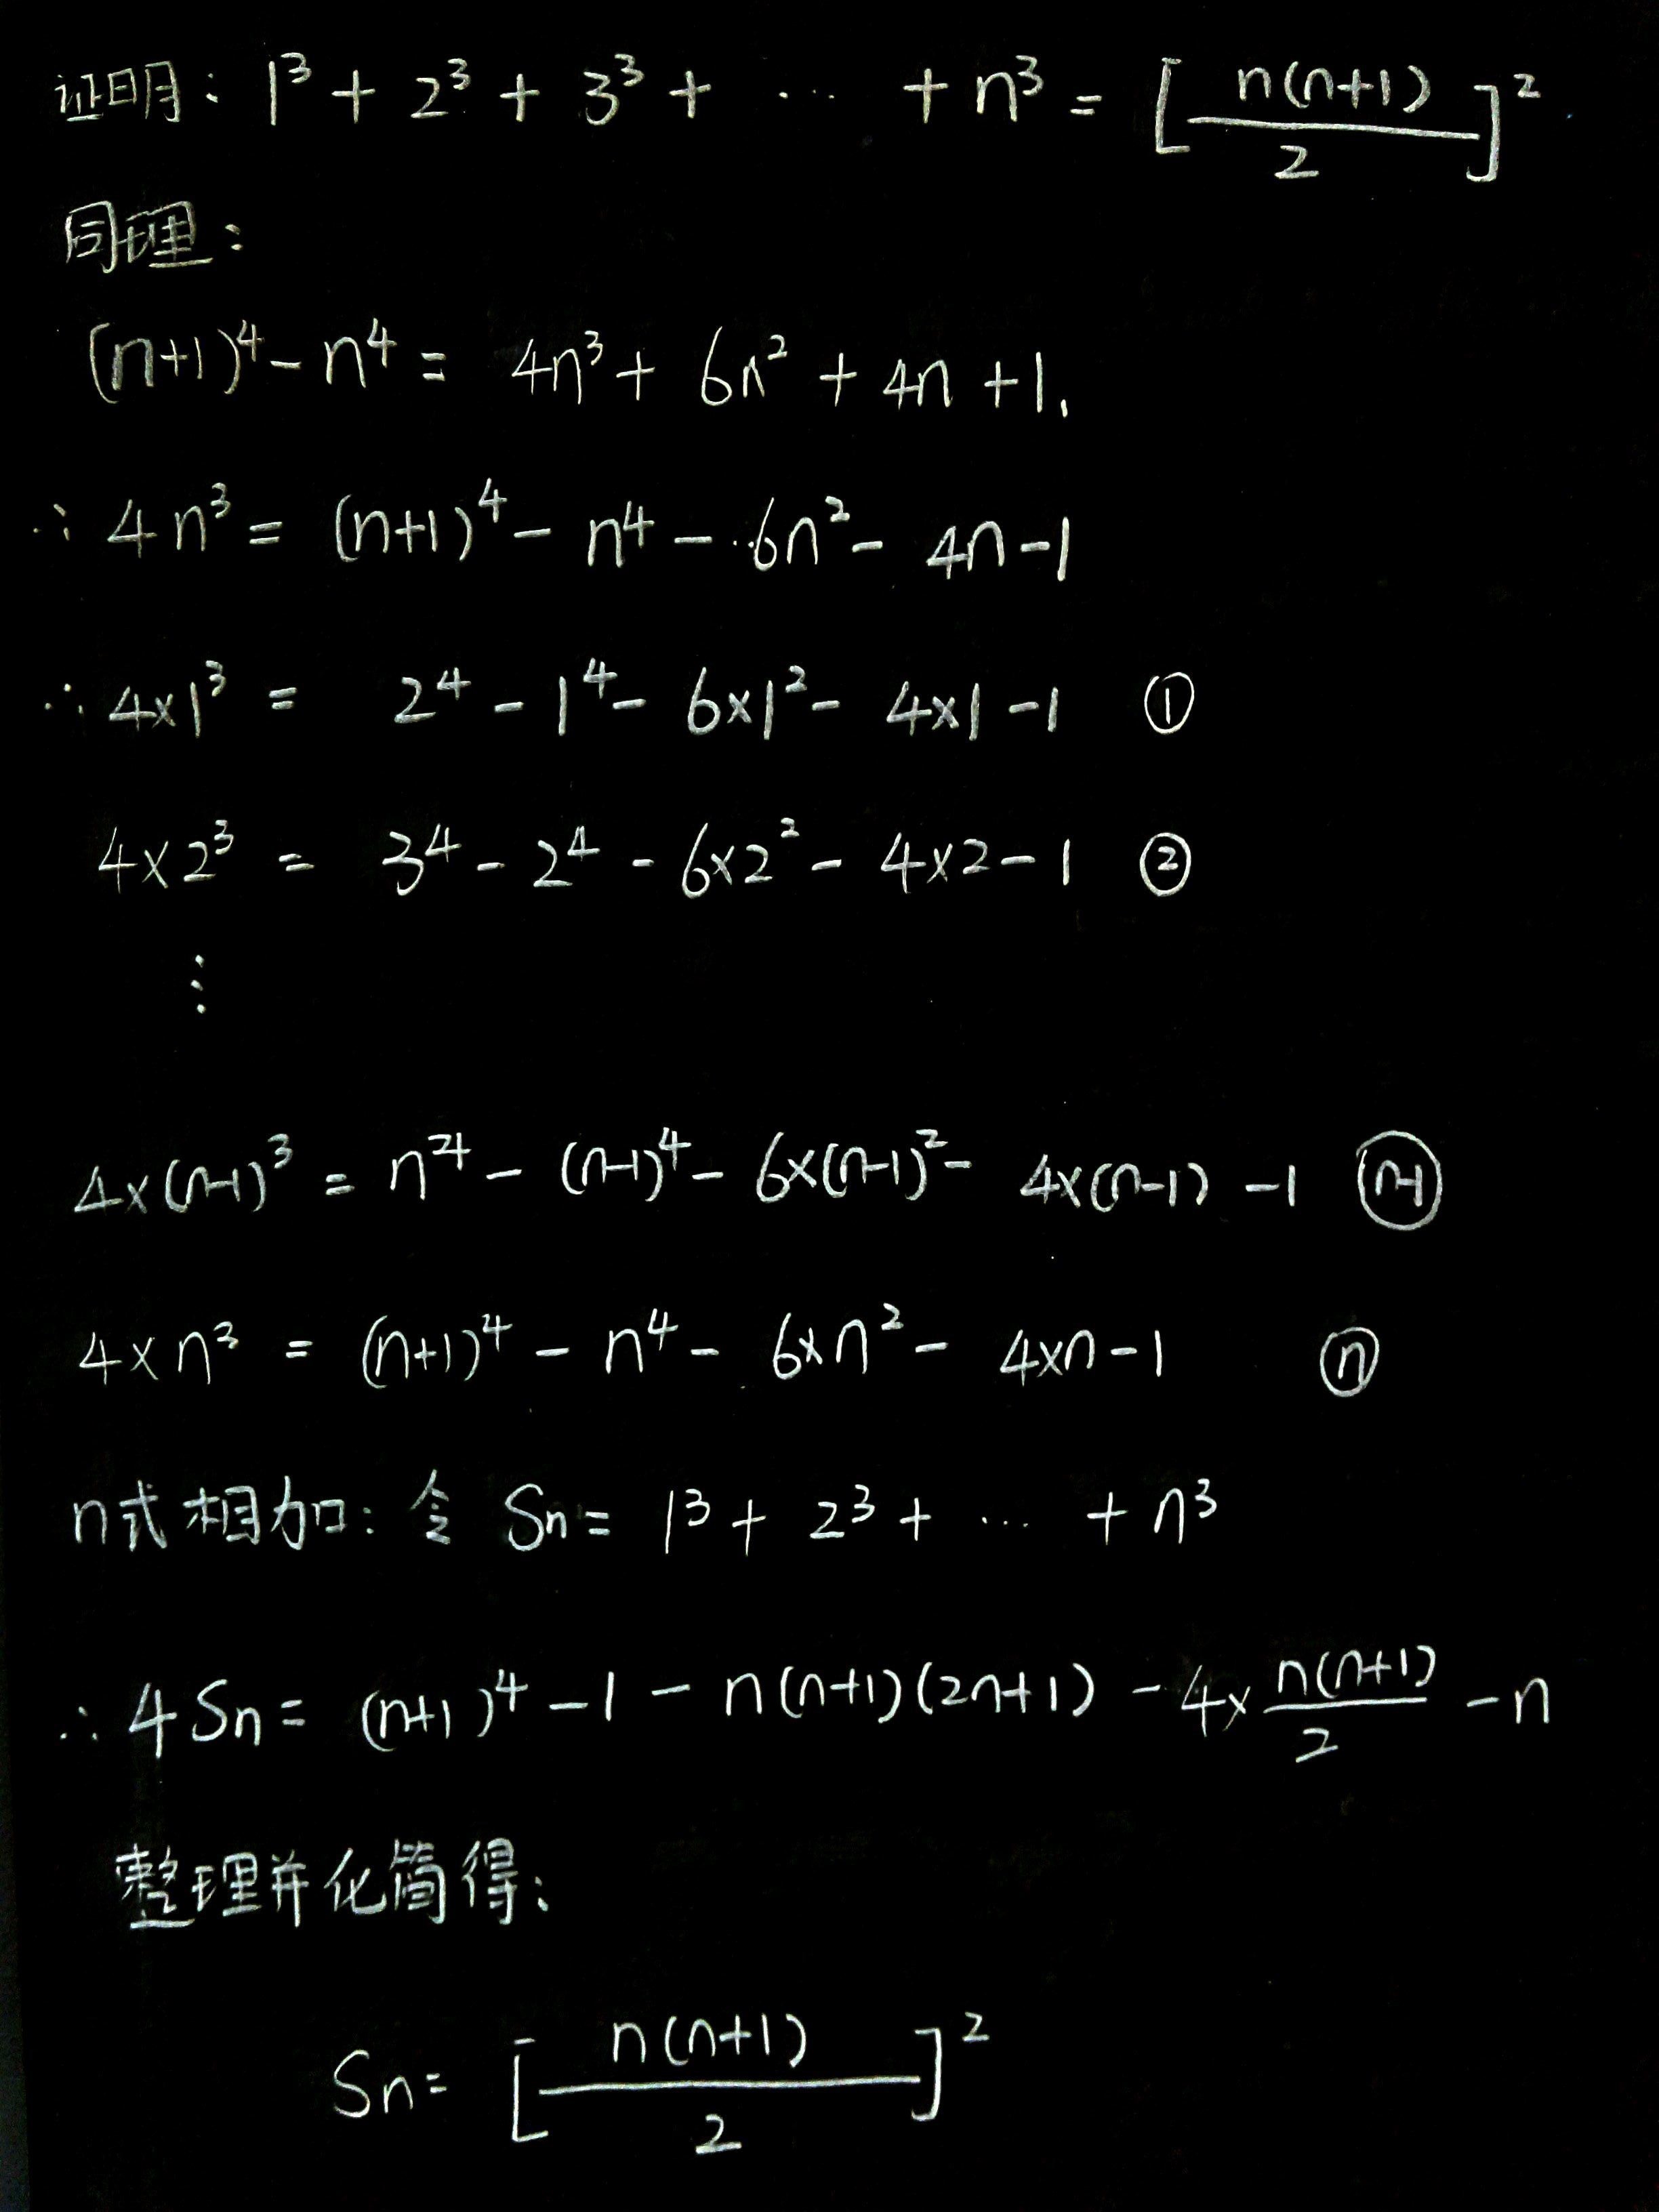 证明: 1³ + 2³ + 3³ + … + n³ = [n(n+1)/2]²
同理:
(n+1)⁴ - n⁴ = 4n³ + 6n² + 4n + 1.
∴ 4n³ = (n+1)⁴ - n⁴ - 6n² - 4n - 1
∴ 4×1³ = 2⁴ - 1⁴ - 6×1² - 4×1 - 1 ①
4×2³ = 3⁴ - 2⁴ - 6×2² - 4×2 - 1 ②
⋮
4×(n-1)³ = n⁴ - (n-1)⁴ - 6×(n-1)² - 4×(n-1) - 1 (n-1)
4×n³ = (n+1)⁴ - n⁴ - 6×n² - 4×n - 1 ⓝ
n式相加: 令 Sn = 1³ + 2³ + … + n³
∴ 4Sn = (n+1)⁴ - 1 - n(n+1)(2n+1) - 4×n(n+1)/2 - n
整理并化简得:
Sn = [n(n+1)/2]²